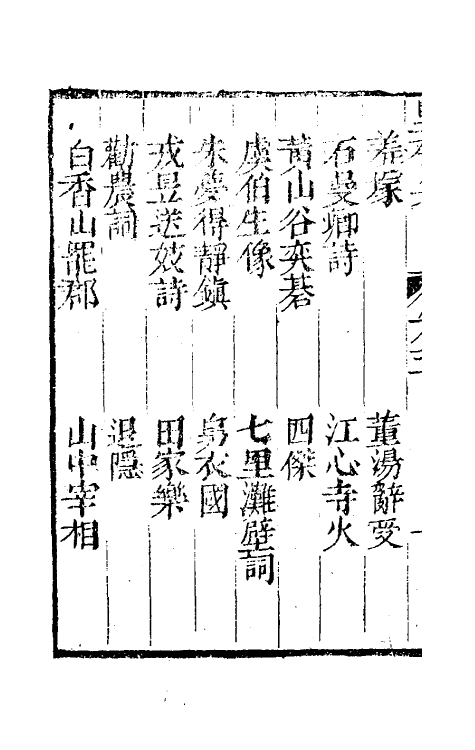 羞塚　董湯辭受
石曼卿詩　江心寺火
黄山谷奕碁　四傑
虞伯生像　七里灘壁詞
朱夢得靜鎮　烏衣國
戎昱送妓詩　田家樂
勸農詞　退隱
白香山罷郡　山中宰相